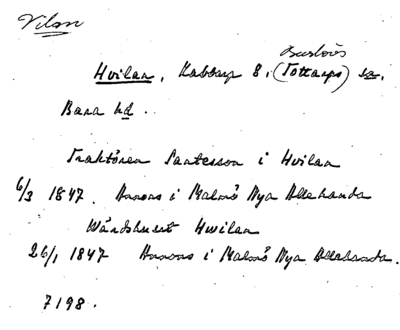 Vilan
Burlövs
Hvilan, Kabbarp 8, (Tottarps) sn.
Bara hd.
Traktören Santesson i Hvilan
6/3 1847. Annons i Malmö Nya Allehanda
Wärdshuset Hwilan
26/1 1847 Annons i Malmö Nya Allehanda.
7198.